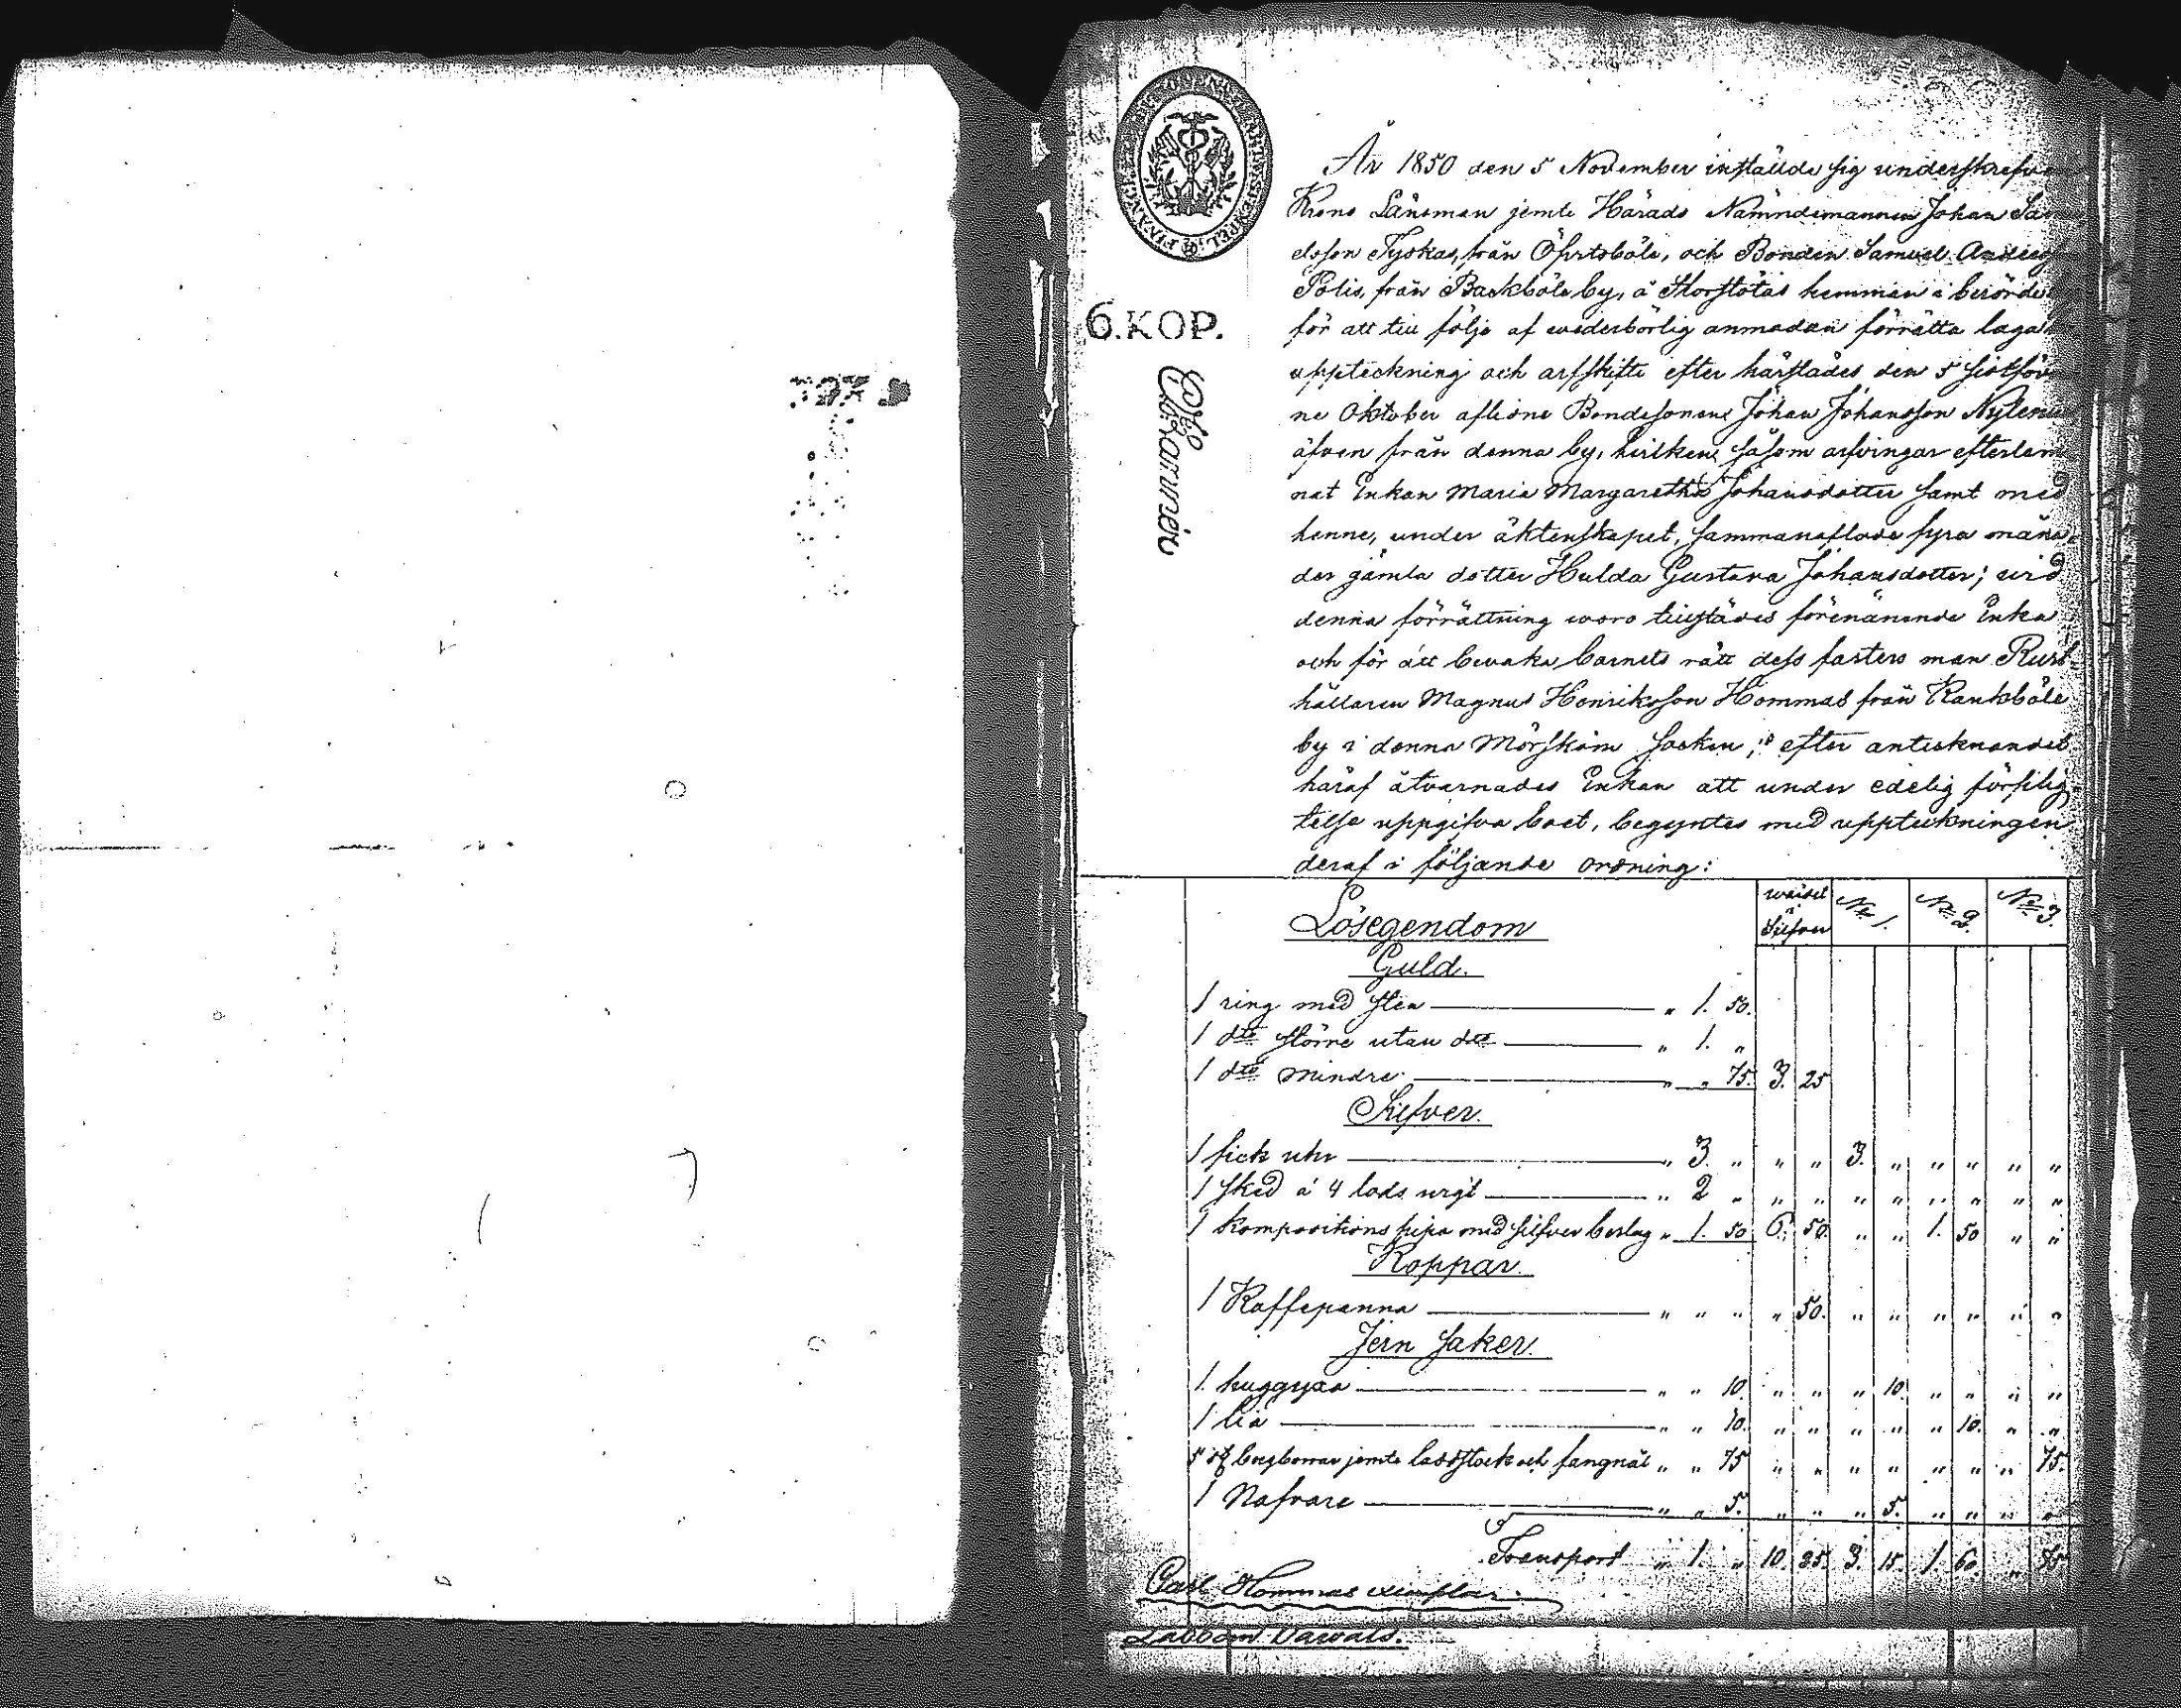 6. KOP.
År 1850 den 5 November inställde sig underskrefvne
Krono Länsman jemte Härads Nämndemannen Johan Sam
elsson Tyskas, från Öfvitsböle, och Bonden Samuel Andersson
Polis, från Backböle by, å Storstötas hemman i berörde
för att till följe af wederbörlig anmodan förrätta laga
uppteckning och arfskifte efter härstädes den 5 sistförvi
ne Oktober aflidne Bondesonen Johan Johansson Nylenu
äfven från denna by, hvilken såsom arfvingar efterlem
nat Enkan Maria Margaretha Johansdotter samt med
henne, under äktenskapet, sammanaflade fyra måna
der gamla dotter Hulda Gustava Johansdotter; vid
denna förrättning woro tillstädes förenämnde Enka
och för att bevaka barnets rätt dess fasters man Rust
hållaren Magnus Henriksson Hommas från Kankböle
by i denna Mörskom socken; efter antecknandet
häraf åtvarnades Enkan att under edelig förplig
telse uppgifva boet, begyntes med uppteckningen
deraf i följande ordning:
Lösegendom
Silfver № 1. № 2. № 3.
Guld.
1 ring med sten — " 1. 50.
1 dto större utan dto — " 1. "
1 dto mindre — " " 75. 3. 25
Silfver.
1 fick uhr — " 3. " " " 3. " " " " "
1 sked á 4 lods wigt — " 2 " " " " " " " " "
1 kompositions pipa med silfver beslag " 1. 50 6. 50. " " 1. 50 " "
Koppar.
1 Kaffepanna — " " " " 50. " " " " " "
Jern saker.
1 huggyxa — " " 10. " " " 10. " " " "
1 lia — " " 10. " " " " " 10. " "
5 st bergborrar jemte laddstock och fangnål " " 75 " " " " " " " 75.
1 Nafvare — " " 5. " " " 5. " " " "
Transport " 1. " 10. 25. 3. 15 1. 60. " 75.
Carl Hommas